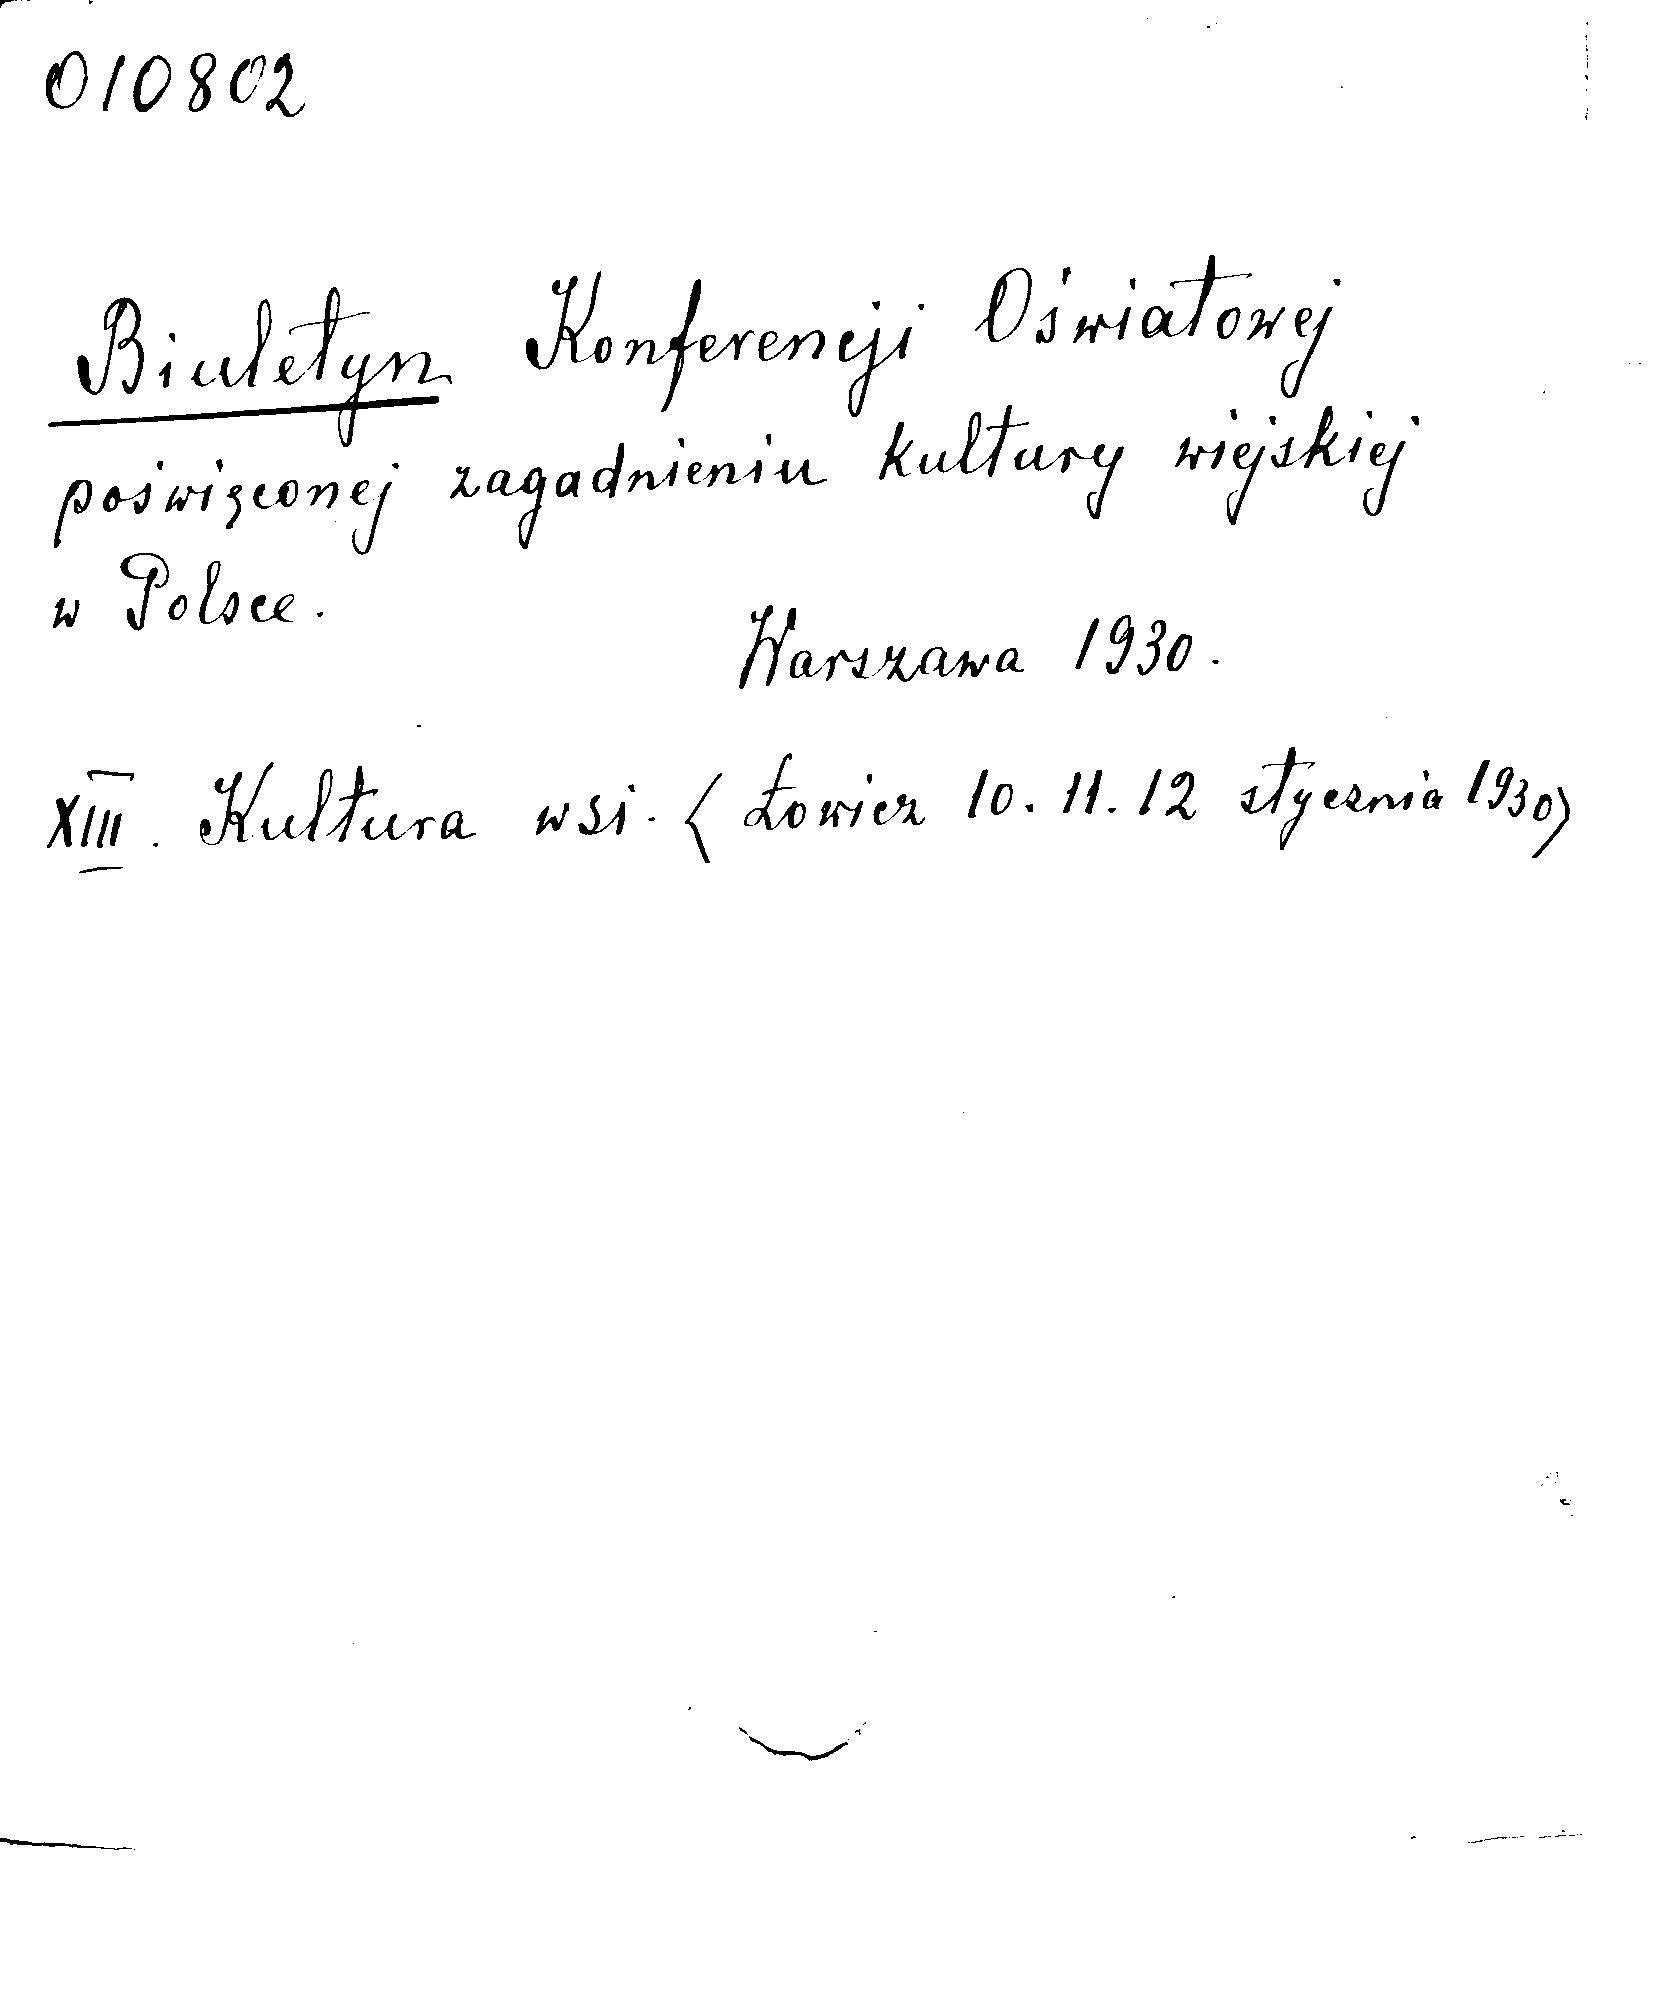 010802
Biuletyn Konferencji Oświatowej
poświęconej zagadnieniu kultury wiejskiej
w Polsce.
Warszawa 1930.
XIII. Kultura wsi. (Łowicz 10. 11. 12 stycznia 1930)